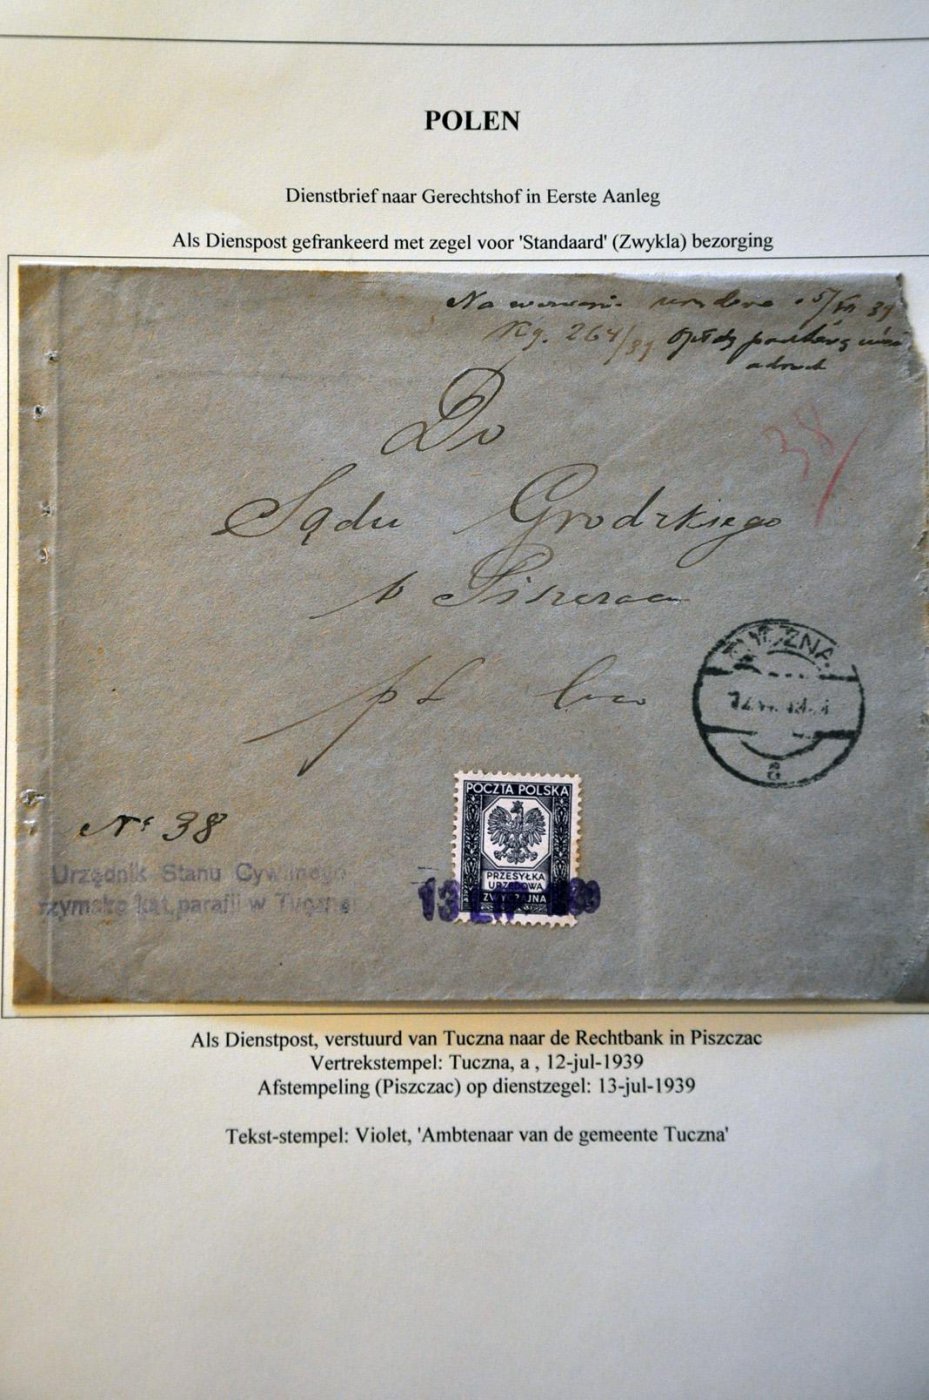 POLEN
Dienstbrief naar Gerechtshof in Eerste Aanleg
Als Dienspost gefrankeerd met zegel voor 'Standaard' (Zwykla) bezorging
Kg. 264/39
Do
38
Sądu Grodzkiego
w
TUCZNA
a
POCZTA POLSKA
PRZESYŁKA
URZĘDOWA
ZWYCZAJNA
Nr 38
Urzędnik Stanu Cywilnego
rzymsko kat. parafji w Tucznej
13
Als Dienstpost, verstuurd van Tuczna naar de Rechtbank in Piszczac
Vertrekstempel: Tuczna, a , 12-jul-1939
Afstempeling (Piszczac) op dienstzegel: 13-jul-1939
Tekst-stempel: Violet, 'Ambtenaar van de gemeente Tuczna'